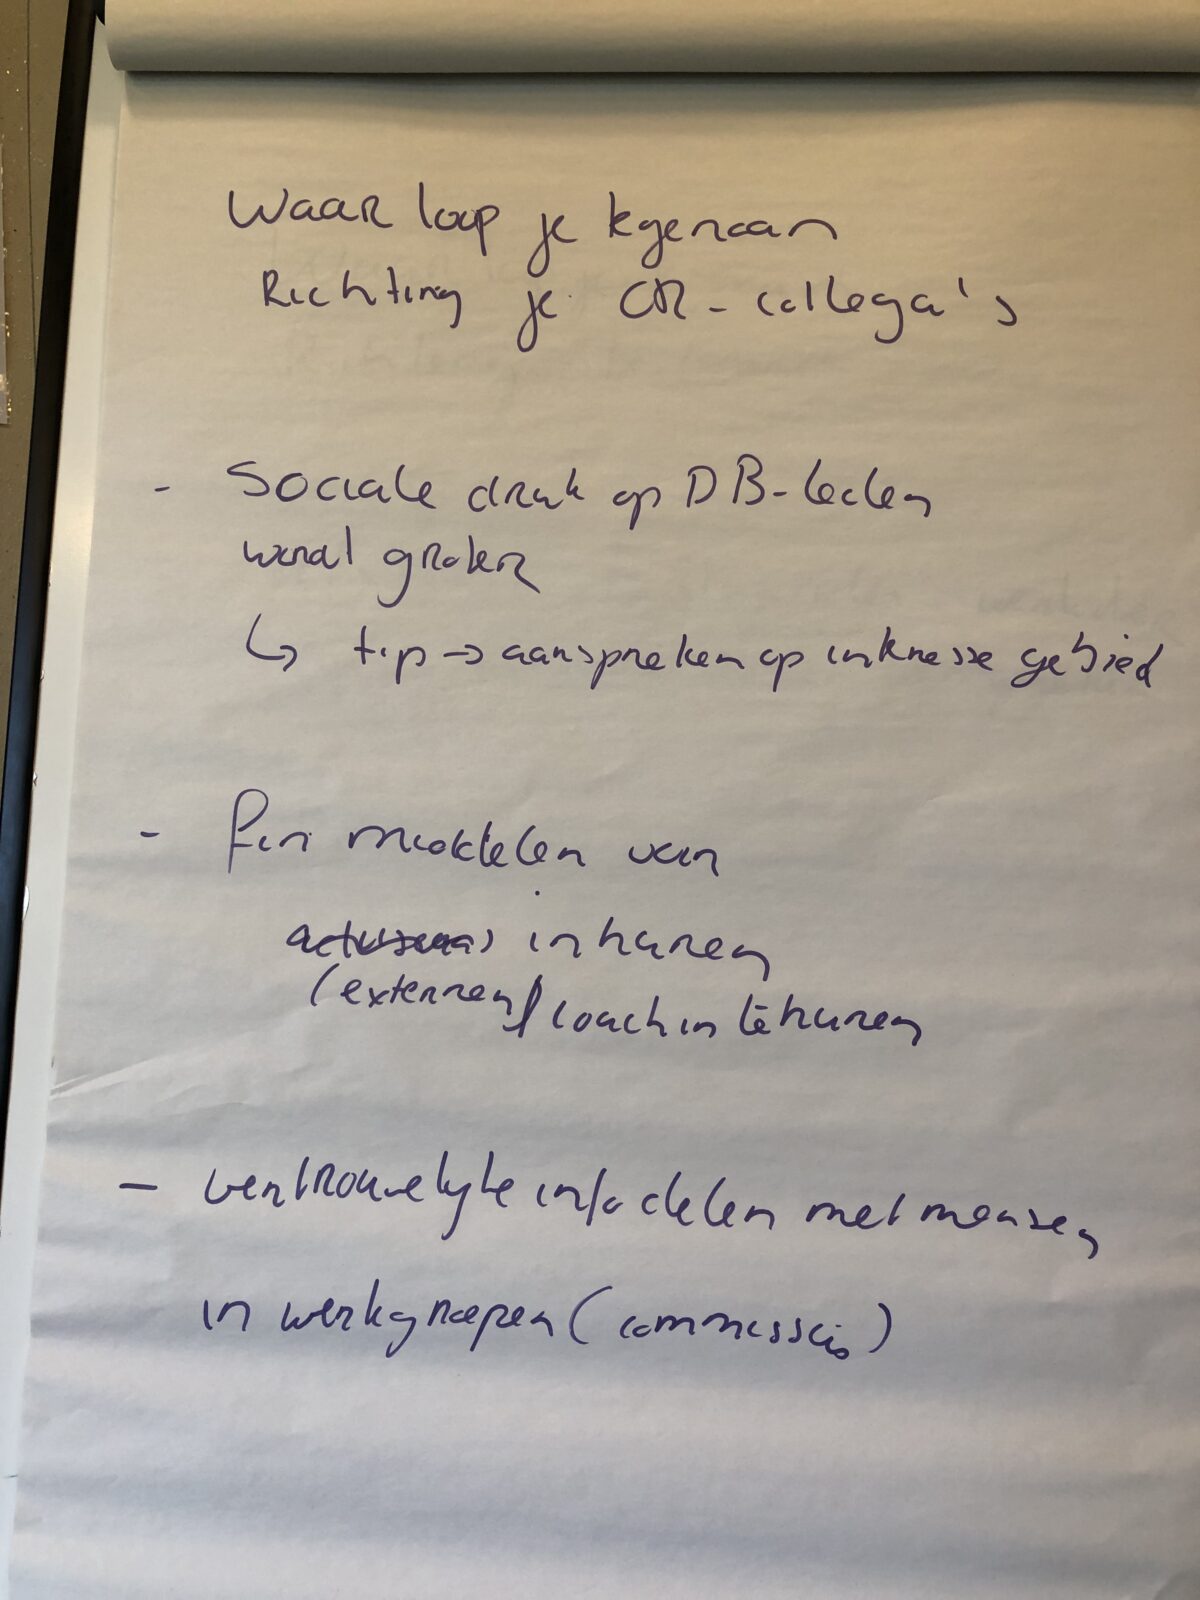 Waar loop je tegenaan
Richting je CR-collega's
- Sociale druk op DB-leden
wordt groter
↳ tip → aanspreken op interesse gebied
- fin middelen van
inhuren
(externen) coach in te huren
- vertrouwelijke info delen met mensen
in werkgroepen (commissies)